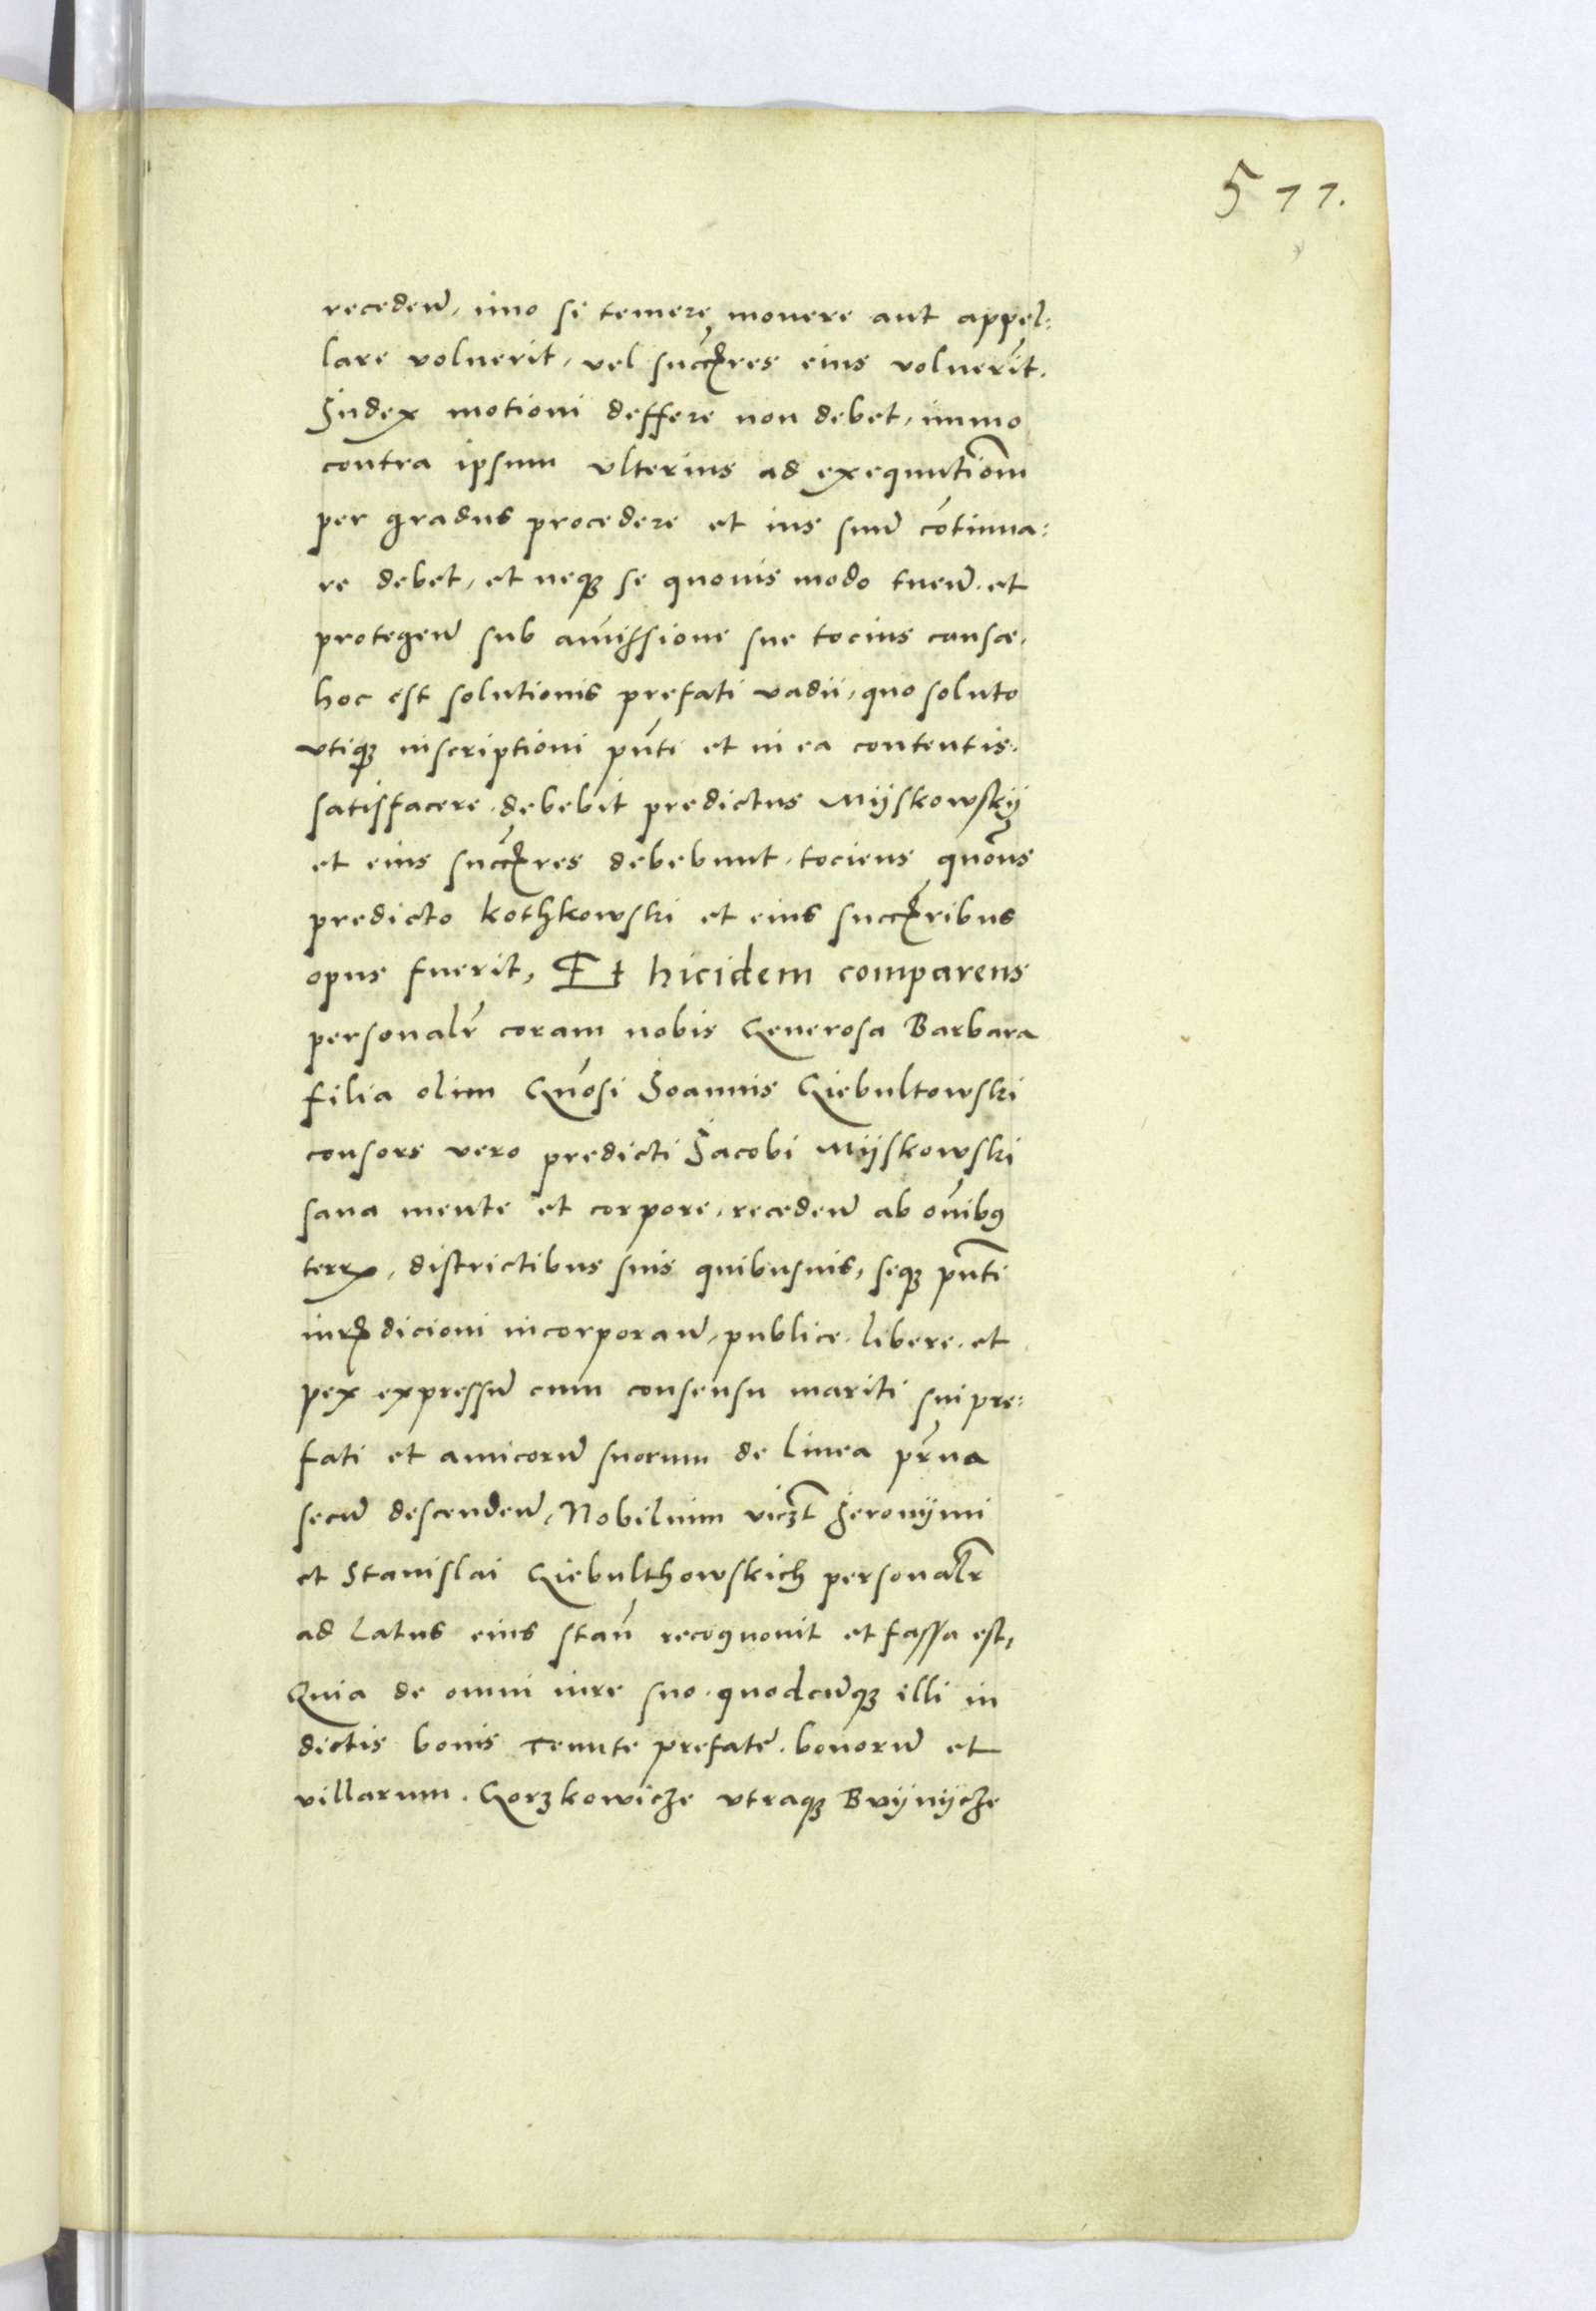 511.
recedeñ, imo si temere mouere aut appel:
lare voluerit, vel succ̃res eius voluerit.
Iudex motioni deffere non debet, immo
contra ipsum vlterius ad exequutiom̃
per gradus procedere et ius suũ cõtinua:
re debet, et neqȝ se quouis modo tueñ. et
protegeñ sub amissione sue tocius causæ.
hoc est solutionis prefati vadii, quo soluto
vtiqȝ inscriptioni pñti et in ea contentis.
satisfacere debebit predictus Mÿskowskÿ
et eius succ̃res debebunt, tociens quõns
predicto Kothkowski et eius succ̃ribus
opus fuerit, Et hicidem comparens
personalr̃ coram nobis Generosa Barbara
filia olim Gñosi Ioannis Giebultowski
consors vero predicti Iacobi Mÿskowski
sana mente et corpore, recedeñ ab om̃ibꝰ
terrꝭ, districtibus suis quibusuis, seqȝ pñti
iurꝭdicioni incorporañ, publice. libere. et
pex expressũ cum consensu mariti sui pre:
fati et amicorũ suorum de linea pr̃na
secũ descendeñ, Nobilium viczt̃ Ieronÿmi
et Stanislai Giebulthowskich personalr̃
ad latus eius stañ recognouit et fassa est,
Quia de omni iure suo. quodcũqȝ illi in
dictis bonis Tenute prefate. bonorũ et
villarum. Gorzkowicze vtraqȝ Bvÿnÿcze